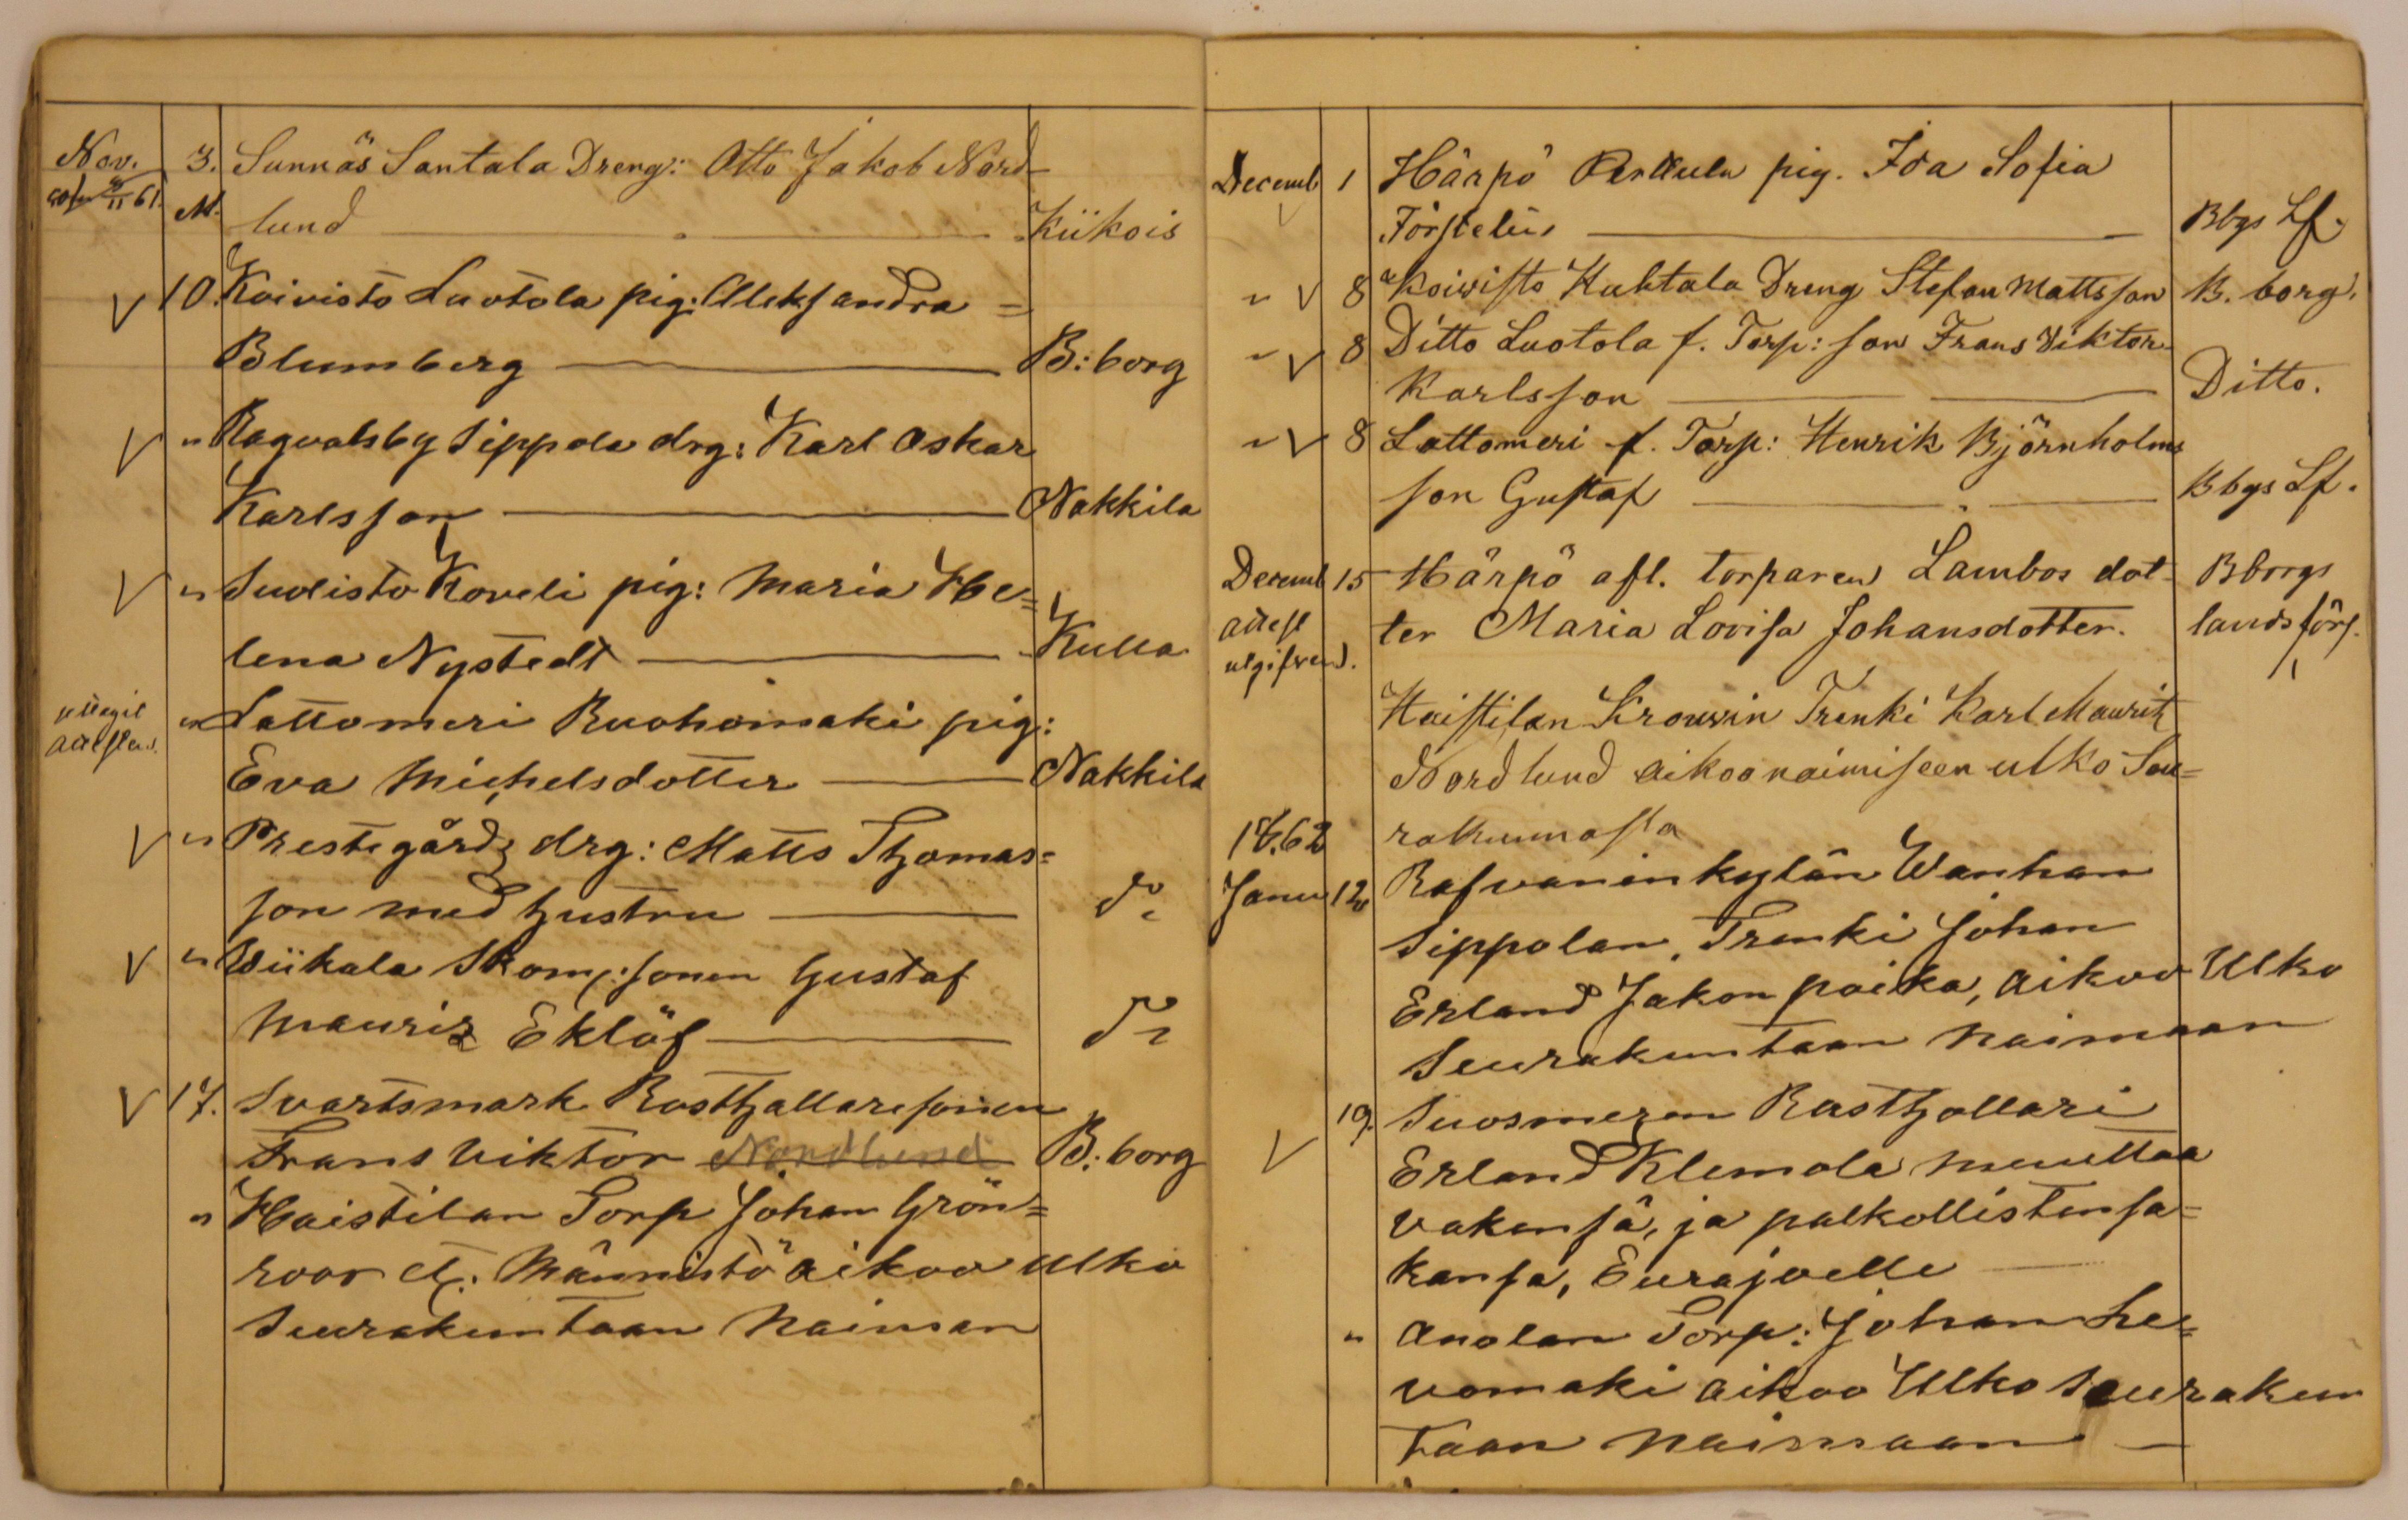 Nov. 3. Sunnäs Santala Dreng: Otto Jakob Nord-
61. M. lund Kiikois
10. Koivisto Luotola pig: Aleksandra =
Blumberg B:borg
" Ragvalsby Sippola drg: Karl Oskar
Karlsson Nakkila
" Suolisto Koveli pig: Maria He=
lena Nystedt Kulla
" Lattomeri Ruohomaki pig:
Eva Michelsdotter Nakkila
" Prestegårds drg: Matts Thomas=
son med hustru do
" Wiikala Skom: sonen Gustaf
Mauriz Eklöf do
17. Svartsmark Rusthållaresonen
Frans Viktor Nordlund B:borg
" Haistilan Torp Johan Grön=
roos Männistö aikoo Ulko
Seurakuntaan Naiman
Decemb 1 Härpö Perkula pig. Ida Sofia
Förstelius Bbgs Lf.
" 8 Koivisto Huhtala Dreng Stefan Mattsson B. borg.
" 8 Ditto Luotola f. Torp: son Frans Viktor
Karlsson Ditto.
" 8 Lattomeri f. Torp: Henrik Björnholms
son Gustaf Bbgs Lf.
Decemb 15 Härpö afl. torparen Lambos dot- Bborgs
attest ter Maria Lovisa Johansdotter. landsförs.
utgifven.
Haistilan Krouvin Trenki Karl Mauritz
Nordlund aikoo naimiseen ulko Seu=
1862 rakunnasta
Janu 12 Rafvaninkylän Wanhan
Sippolan, Trenki Johan
Erland Jakon poika, aikoo Ulko
Seurakuntaan Naimaan
19. Suosmeren Rusthollari
Erland Klemola Muuttaa
Vakensä, ja palkollistensa=
kansa, Eurajoelle
" Anolan Torp: Johan Le=
vomaki aikoo Ulko Seurakun
taan Naimaan